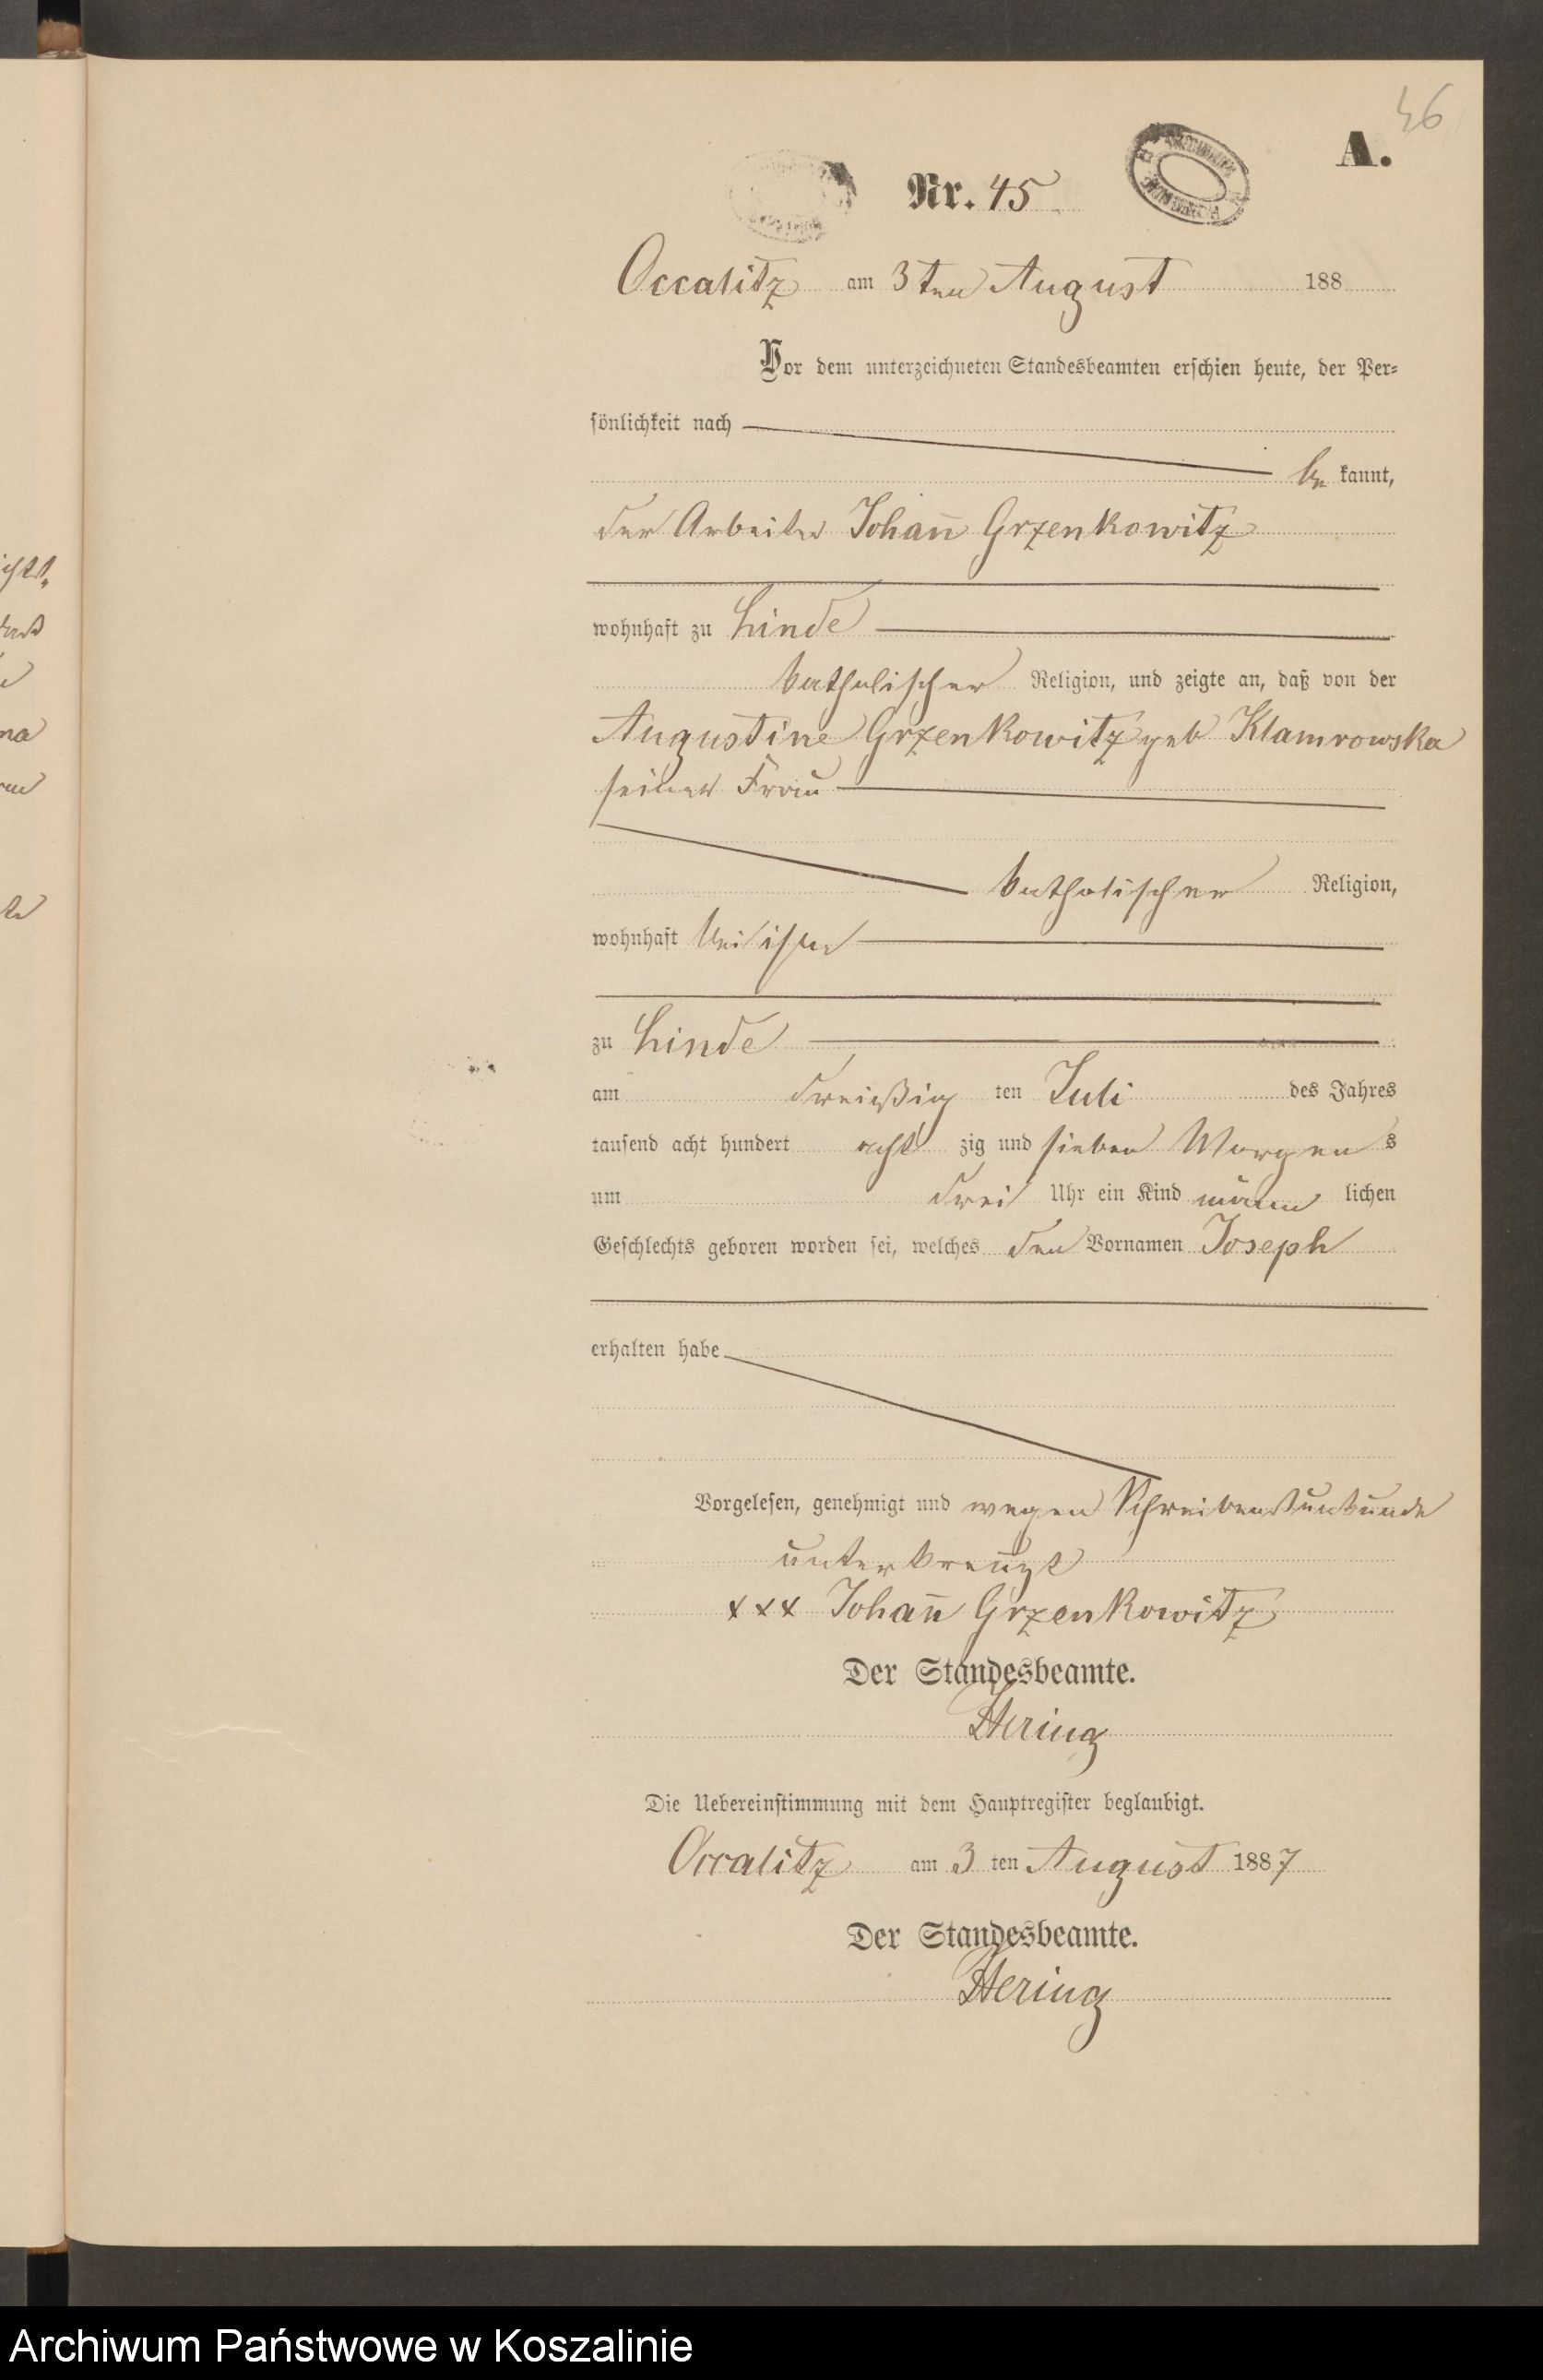 46
A.
Nr. 45
Occalitz am 3ten August 188
Vor dem unterzeichneten Standesbeamten erschien heute, der Per-
sönlichkeit nach
be kannt,
der Arbeiter Johan̄ Grzenkowitz
wohnhaft zu Linde
katholischer Religion, und zeigte an, daß von der
Augustine Grzenkowitz geb Klamrowska
seiner Frau
katholischer Religion,
wohnhaft bei ihm
zu Linde
am dreißig ten Juli des Jahres
tausend acht hundert acht zig und sieben Morgen s
um drei Uhr ein Kind männ lichen
Geschlechts geboren worden sei, welches den Vornamen Joseph
erhalten habe
Vorgelesen, genehmigt und wegen Schreibensunkunde
unterkreuzt
xxx Johan̄ Grzenkowitz
Der Standesbeamte.
Hering
Die Uebereinstimmung mit dem Hauptregister beglaubigt.
Occalitz am 3 ten August 1887
Der Standesbeamte.
Hering
Archiwum Państwowe w Koszalinie